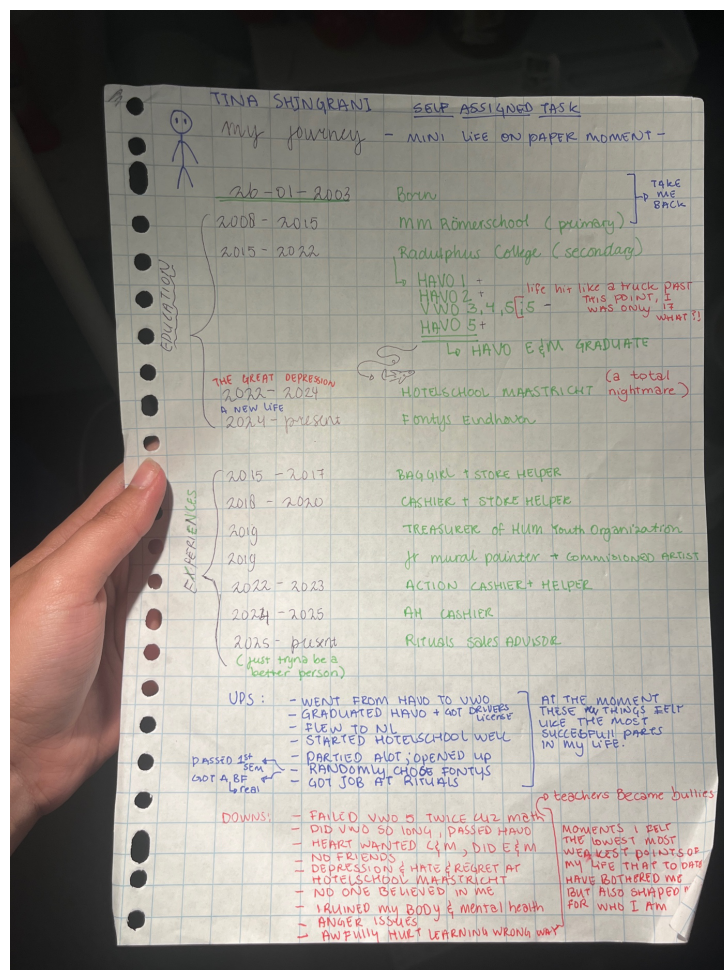 TINA SHINGRANI
SELF ASSIGNED TASK
my journey - MINI LIFE ON PAPER MOMENT -
26-01-2003 Born
TAKE
ME
BACK
EDUCATION
2008 - 2015 MM Römerschool (primary)
2015 - 2022 Radulphus College (secondary)
HAVO 1 +
HAVO 2 +
VWO 3, 4, 5, 5 -
life hit like a truck past
THIS POINT, I
WAS ONLY 17
WHAT?!
HAVO 5 +
HAVO E&M GRADUATE
THE GREAT DEPRESSION
2022 - 2024 HOTELSCHOOL MAASTRICHT (a total
nightmare)
A NEW LIFE
2024 - present Fontys Eindhoven
EXPERIENCES
2015 - 2017 BAGGIRL + STORE HELPER
2018 - 2020 CASHIER + STORE HELPER
2019 TREASURER of HUM Youth Organization
2019 Jr mural painter + COMMISIONED ARTIST
2022 - 2023 ACTION CASHIER + HELPER
2024 - 2025 AH CASHIER
2025 - present Rituals Sales ADVISOR
(just tryna be a
better person)
UPS: - WENT FROM HAVO TO VWO
- GRADUATED HAVO + GOT DRIVERS
License
- FLEW TO NL
- STARTED HOTELSCHOOL WELL
- PARTIED ALOT, OPENED UP
- RANDOMLY CHOSE FONTYS
- GOT JOB AT RITUALS
PASSED 1st
SEM
GOT A BF
real
AT THE MOMENT
THESE THINGS FELT
LIKE THE MOST
SUCCESFULL PARTS
IN MY LIFE.
teachers became bullies
DOWNS: - FAILED VWO 5 TWICE cuz math
- DID VWO SO LONG, PASSED HAVO
- HEART WANTED C&M, DID E&M
- NO FRIENDS
- DEPRESSION & HATE & REGRET AT
HOTELSCHOOL MAASTRICHT
- NO ONE BELIEVED IN ME
- I RUINED MY BODY & mental health
- ANGER ISSUES
- AWFULLY HURT LEARNING WRONG WAY
MOMENTS I FELT
THE LOWEST MOST
WEAKEST POINTS OF
MY LIFE THAT TO DATE
HAVE BOTHERED ME
BUT ALSO SHAPED
FOR WHO I AM